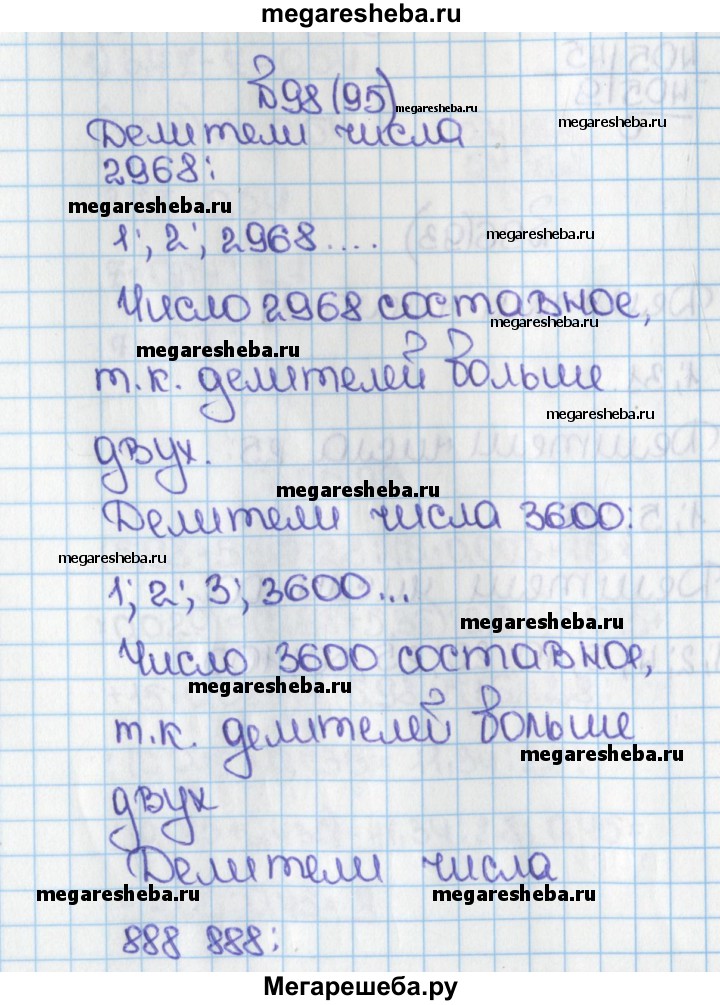 megaresheba.ru
№98 (95)
megaresheba.ru
megaresheba.ru
Делители числа
2968:
megaresheba.ru
megaresheba.ru
1; 2; 2968....
Число 2968 составное,
megaresheba.ru
megaresheba.ru
т.к. делителей больше
megaresheba.ru
двух.
megaresheba.ru
Делители числа 3600:
megaresheba.ru
1; 2; 3; 3600...
megaresheba.ru
Число 3600 составное,
megaresheba.ru
т.к. делителей больше
megaresheba.ru
двух
Делители числа
megaresheba.ru
megaresheba.ru
888 888:
Мегарешеба.ру